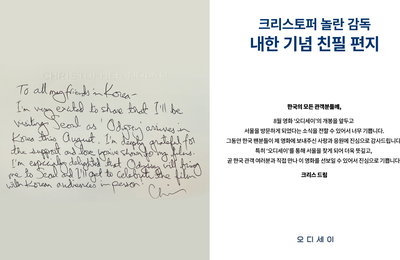 To all my friends in Korea-
I'm very excited to share that I'll be
visiting Seoul as 'Odyssey' arrives in
Korea this August. I'm deeply grateful for
the support and love you've shown to my films.
I'm especially delighted that Odyssey will bring
me to Seoul and I'll get to celebrate the film
with Korean audiences in person!
크리스토퍼 놀란 감독
내한 기념 친필 편지
한국의 모든 관객분들께,
8월 영화 '오디세이'의 개봉을 앞두고
서울을 방문하게 되었다는 소식을 전할 수 있어서 너무 기쁩니다.
그동안 한국 팬분들이 제 영화에 보내주신 사랑과 응원에 진심으로 감사드립니다.
특히 '오디세이'를 통해 서울을 찾게 되어 더욱 뜻깊고,
곧 한국 관객 여러분과 직접 만나 이 영화를 선보일 수 있어서 진심으로 기쁩니다.
크리스 드림
오디세이